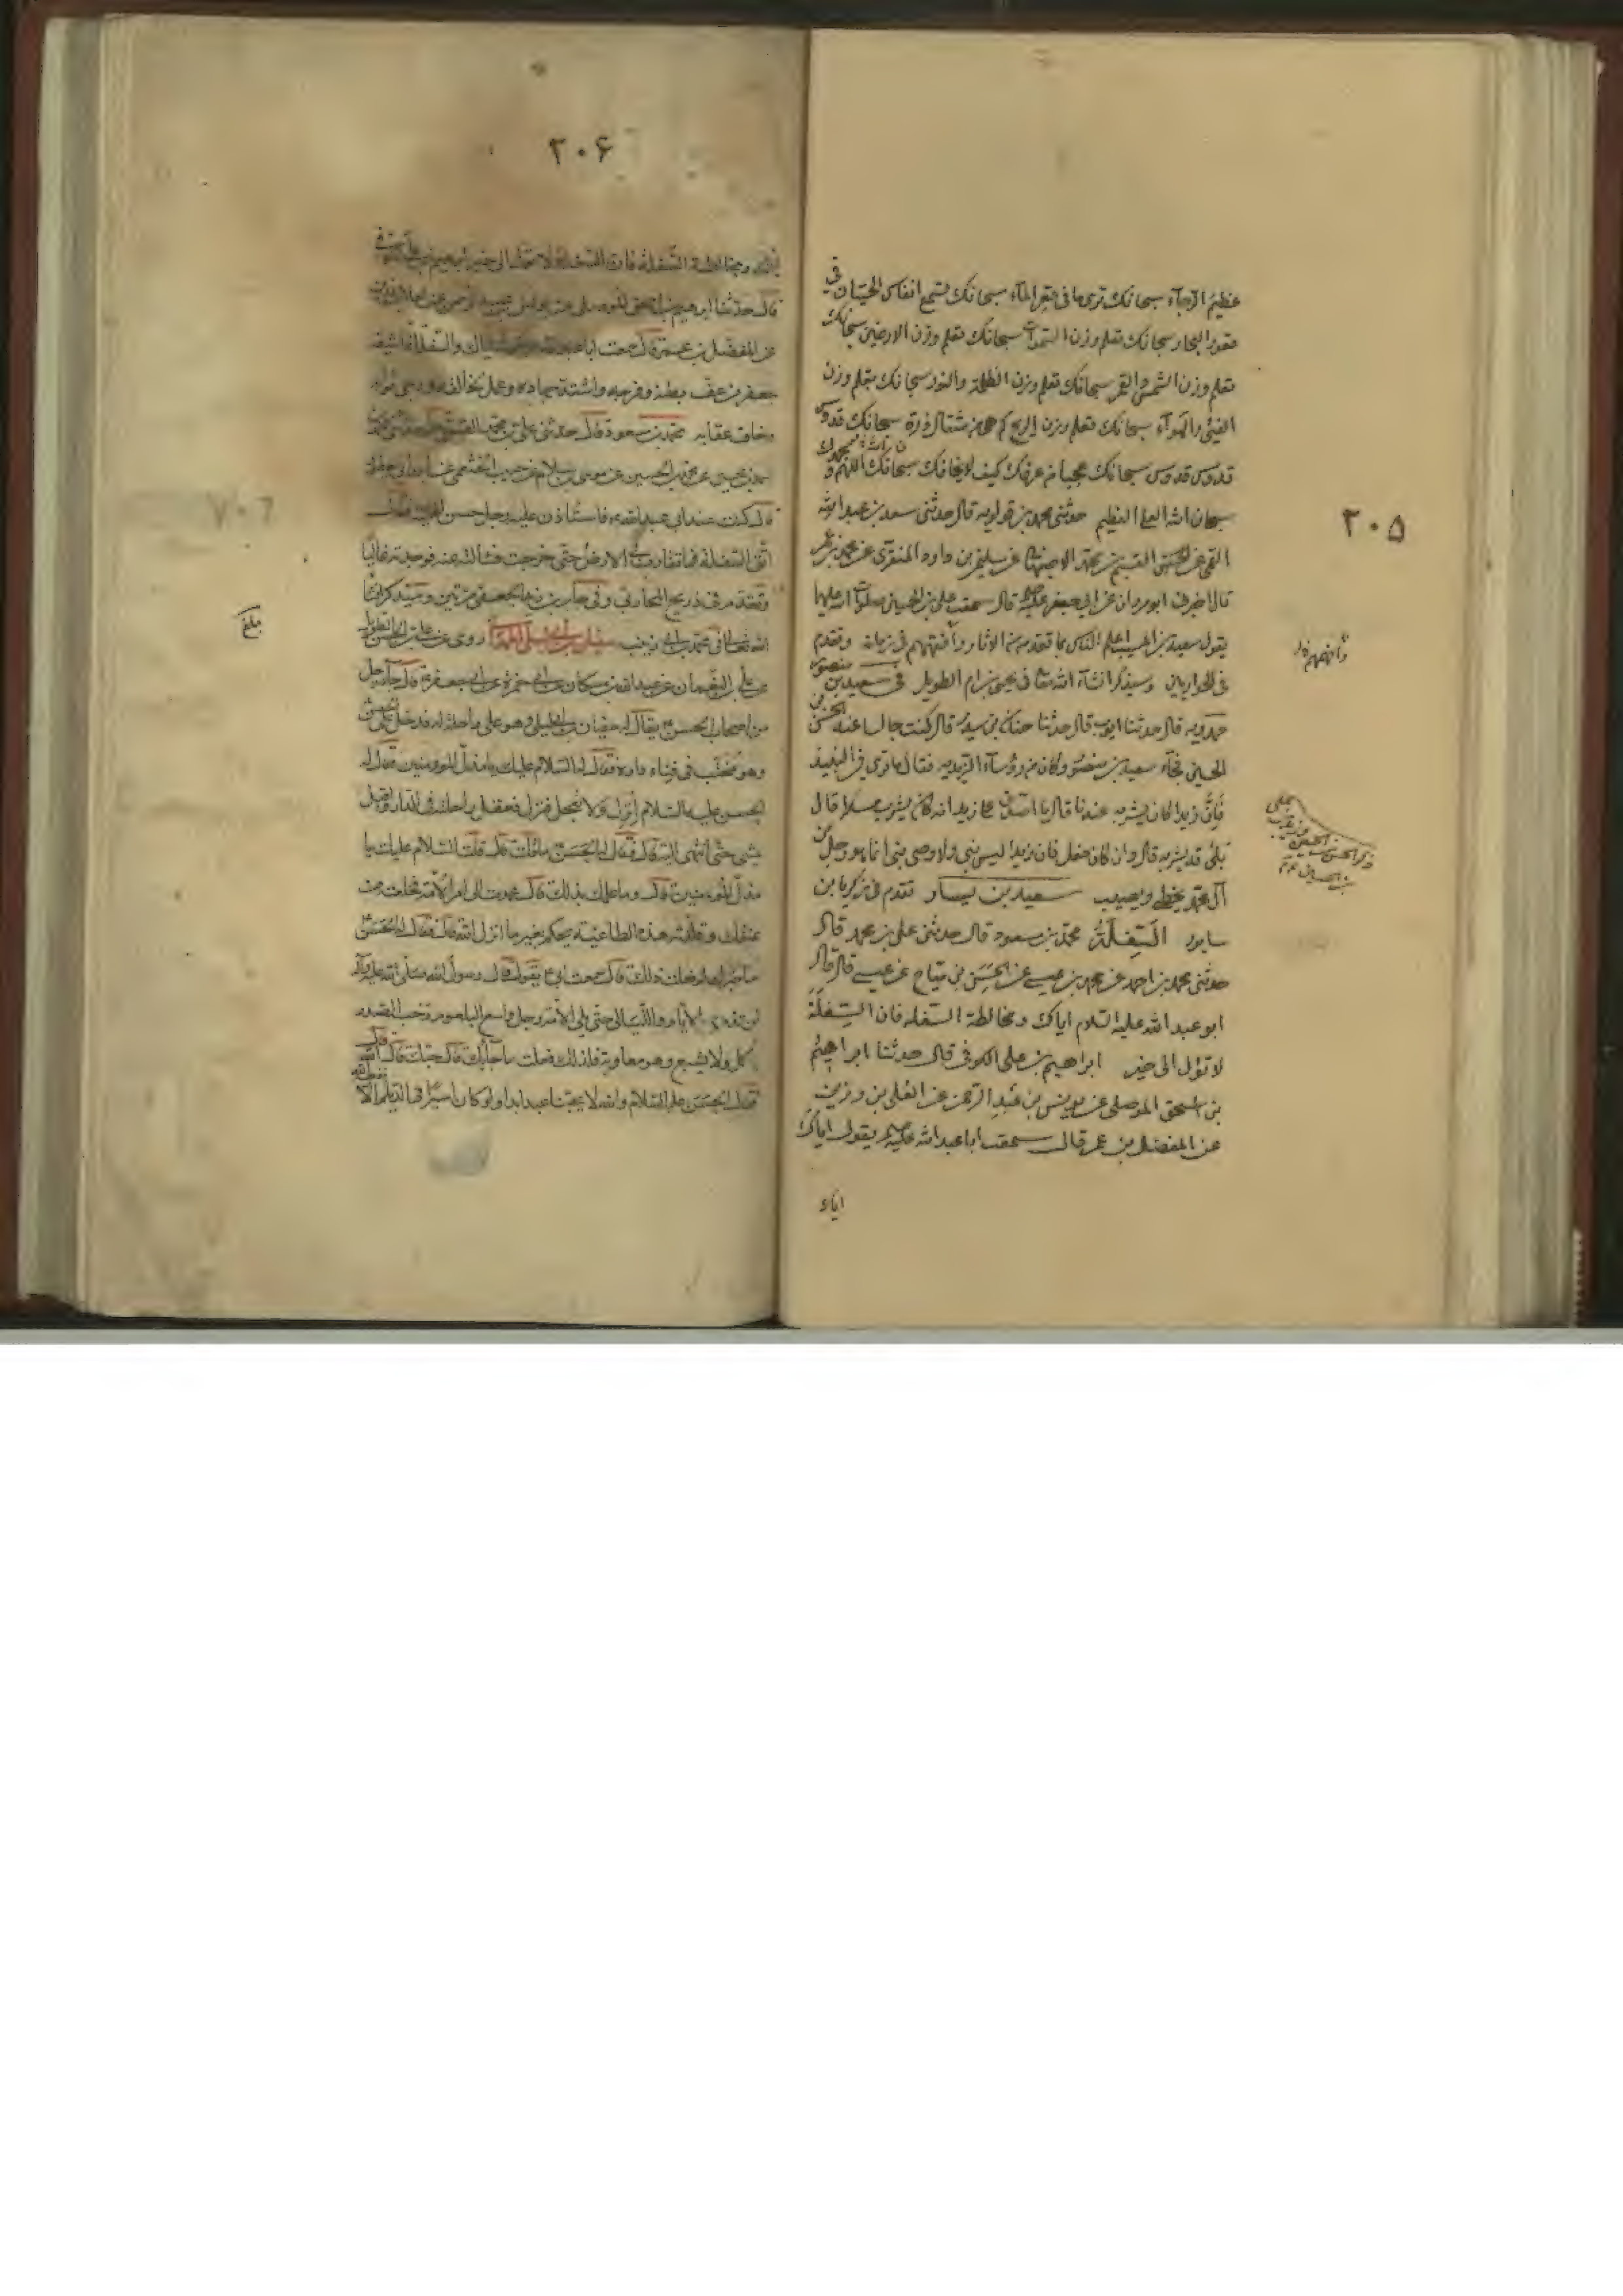 ٢٠٥
عظيم الرجآء سبحانك ترى ما فى قعر المآء سبحانك تسمع انفاس الحيتان فى
قعور البحار سبحانك تعلم وزن السموات سبحانك تعلم وزن الارضين سبحانك
تعلم وزن الشمس والقمر سبحانك تعلم وزن الظلمة والنور سبحانك تعلم وزن
الفيئ والهوآء سبحانك تعلم وزن الريح كم هى من مثقال ذرة سبحانك قدوس
قدوس قدوس سبحانك عجبا من عرفك كيف لا يخافك سبحانك اللهم و بحمدك
سبحان الله العلى العظيم حدثنى محمد بن قولويه قال حدثنى سعد بن عبد الله
القمى عن القسم بن محمد الاصفهانى عن سليمن بن داود المنقرى عن محمد بن عمر
قال اخبرنى ابو مروان عن ابى جعفر قال سمعت على بن الحسين صلوات الله عليهما
يقول سعيد بن المسيب اعلم الناس بما تقدمه من الاثار وافقههم فى زمانه وتقدم
فى الحواريين وسيذكر انشآء الله تعالى فى يحيى بن ام الطويل فى سعيد بن منصور
حمدويه قال حدثنا ايوب قال حدثنا حنان بن سدير قال كنت جالسا عند الحسن بن
الحسين فجآء سعيد بن منصور وكان من رؤسآء الزيدية فقال ما ترى فى النبيذ
فان زيدا كان يشربه عندنا قال ما اصدق على زيد انه كان يشرب مسكرا قال
بلى قد يشربه قال وان كان فعل فان زيدا ليس بنبى ولا وصى نبى انما هو رجل من
آل محمد يخطى ويصيب سعيد بن يسار تقدم فى زكريا بن
سابور السفلة محمد بن مسعود قال حدثنى على بن محمد قال
حدثنى محمد بن احمد عن محمد بن عيسى عن الحسن بن مياح عن عيسى قال قال
ابو عبد الله عليه السلام اياك ومخالطة السفله فان السفلة
لا تؤل الى خير ابراهيم بن على الكوفى قال حدثنا ابراهيم
بن اسحق الموصلى عن يونس بن عبد الرحمن عن العلى بن رزين
عن المفضل بن عمر قال سمعت ابا عبد الله يقول اياك
٢٠۶
ومخالطة السفلة فان السفلة لا تؤل الى خير
قال حدثنا ابرهيم بن اسحق الموصلى عن يونس بن عبد الرحمن عن
عن المفضل بن عمر قال سمعت ابا عبد الله يقول اياك والسفلة انما شيعة
جعفر من عف بطنه وفرجه واشتد جهاده وعمل لخالقه ورجى ثوابه
وخاف عقابه محمد بن مسعود قال حدثنى على بن محمد القمى قال حدثنى محمد بن
احمد بن يحيى عن محمد بن الحسين عن موسى بن سلام عن حبيب الخثعمى عن
قال كنت عند ابى عبد الله فاستأذن عليه رجل حسن الهيئة فقال
اتق السفلة فما تقارت فى الارض حتى خرجت فسألت عنه فوجدته غاليا
وتقدم فى ذريح المحاربى وفى جابر بن يزيد الجعفى مرتين وسيذكر انشآ
الله تعالى فى محمد بن ابى زينب سفيان بن ابى ليلى الهمدانى روى عن على بن الحسن الطويل
عن على بن النعمان عن عبد الله بن مسكان عن ابى حمزة عن ابى جعفر قال جآء رجل
من اصحاب الحسن يقال له سفيان بن ابى ليلى وهو على راحلة له فدخل على الحسن
وهو محتب فى فناء داره فقال له السلام عليك يا مذل المؤمنين فقال له
الحسن عليه السلام انزل ولا تعجل فنزل فعقل راحلته فى الدار واقبل
يمشى حتى انتهى اليه قال فقال له الحسن ما قلت قال قلت السلام عليك يا
مذل المؤمنين قال وما علمك بذلك قال عمدت الى امر الامة فخلعته من
عنقك وقلدته هذه الطاغية يحكم بغير ما انزل الله قال فقال له الحسن
ساخبرك لم فعلت ذلك قال سمعت ابى يقول قال رسول الله صلى الله عليه وآله
لن تذهب الايام والليالى حتى يلى الامة رجل واسع البلعوم رحب الصدر
ياكل ولا يشبع وهو معاوية فلذلك فعلت ما جآء بك قال حبك قال الله
فقال الحسن عليه السلام والله لا يحبنا عبد ابدا ولو كان اسيرا فى الديلم الا
بلغ